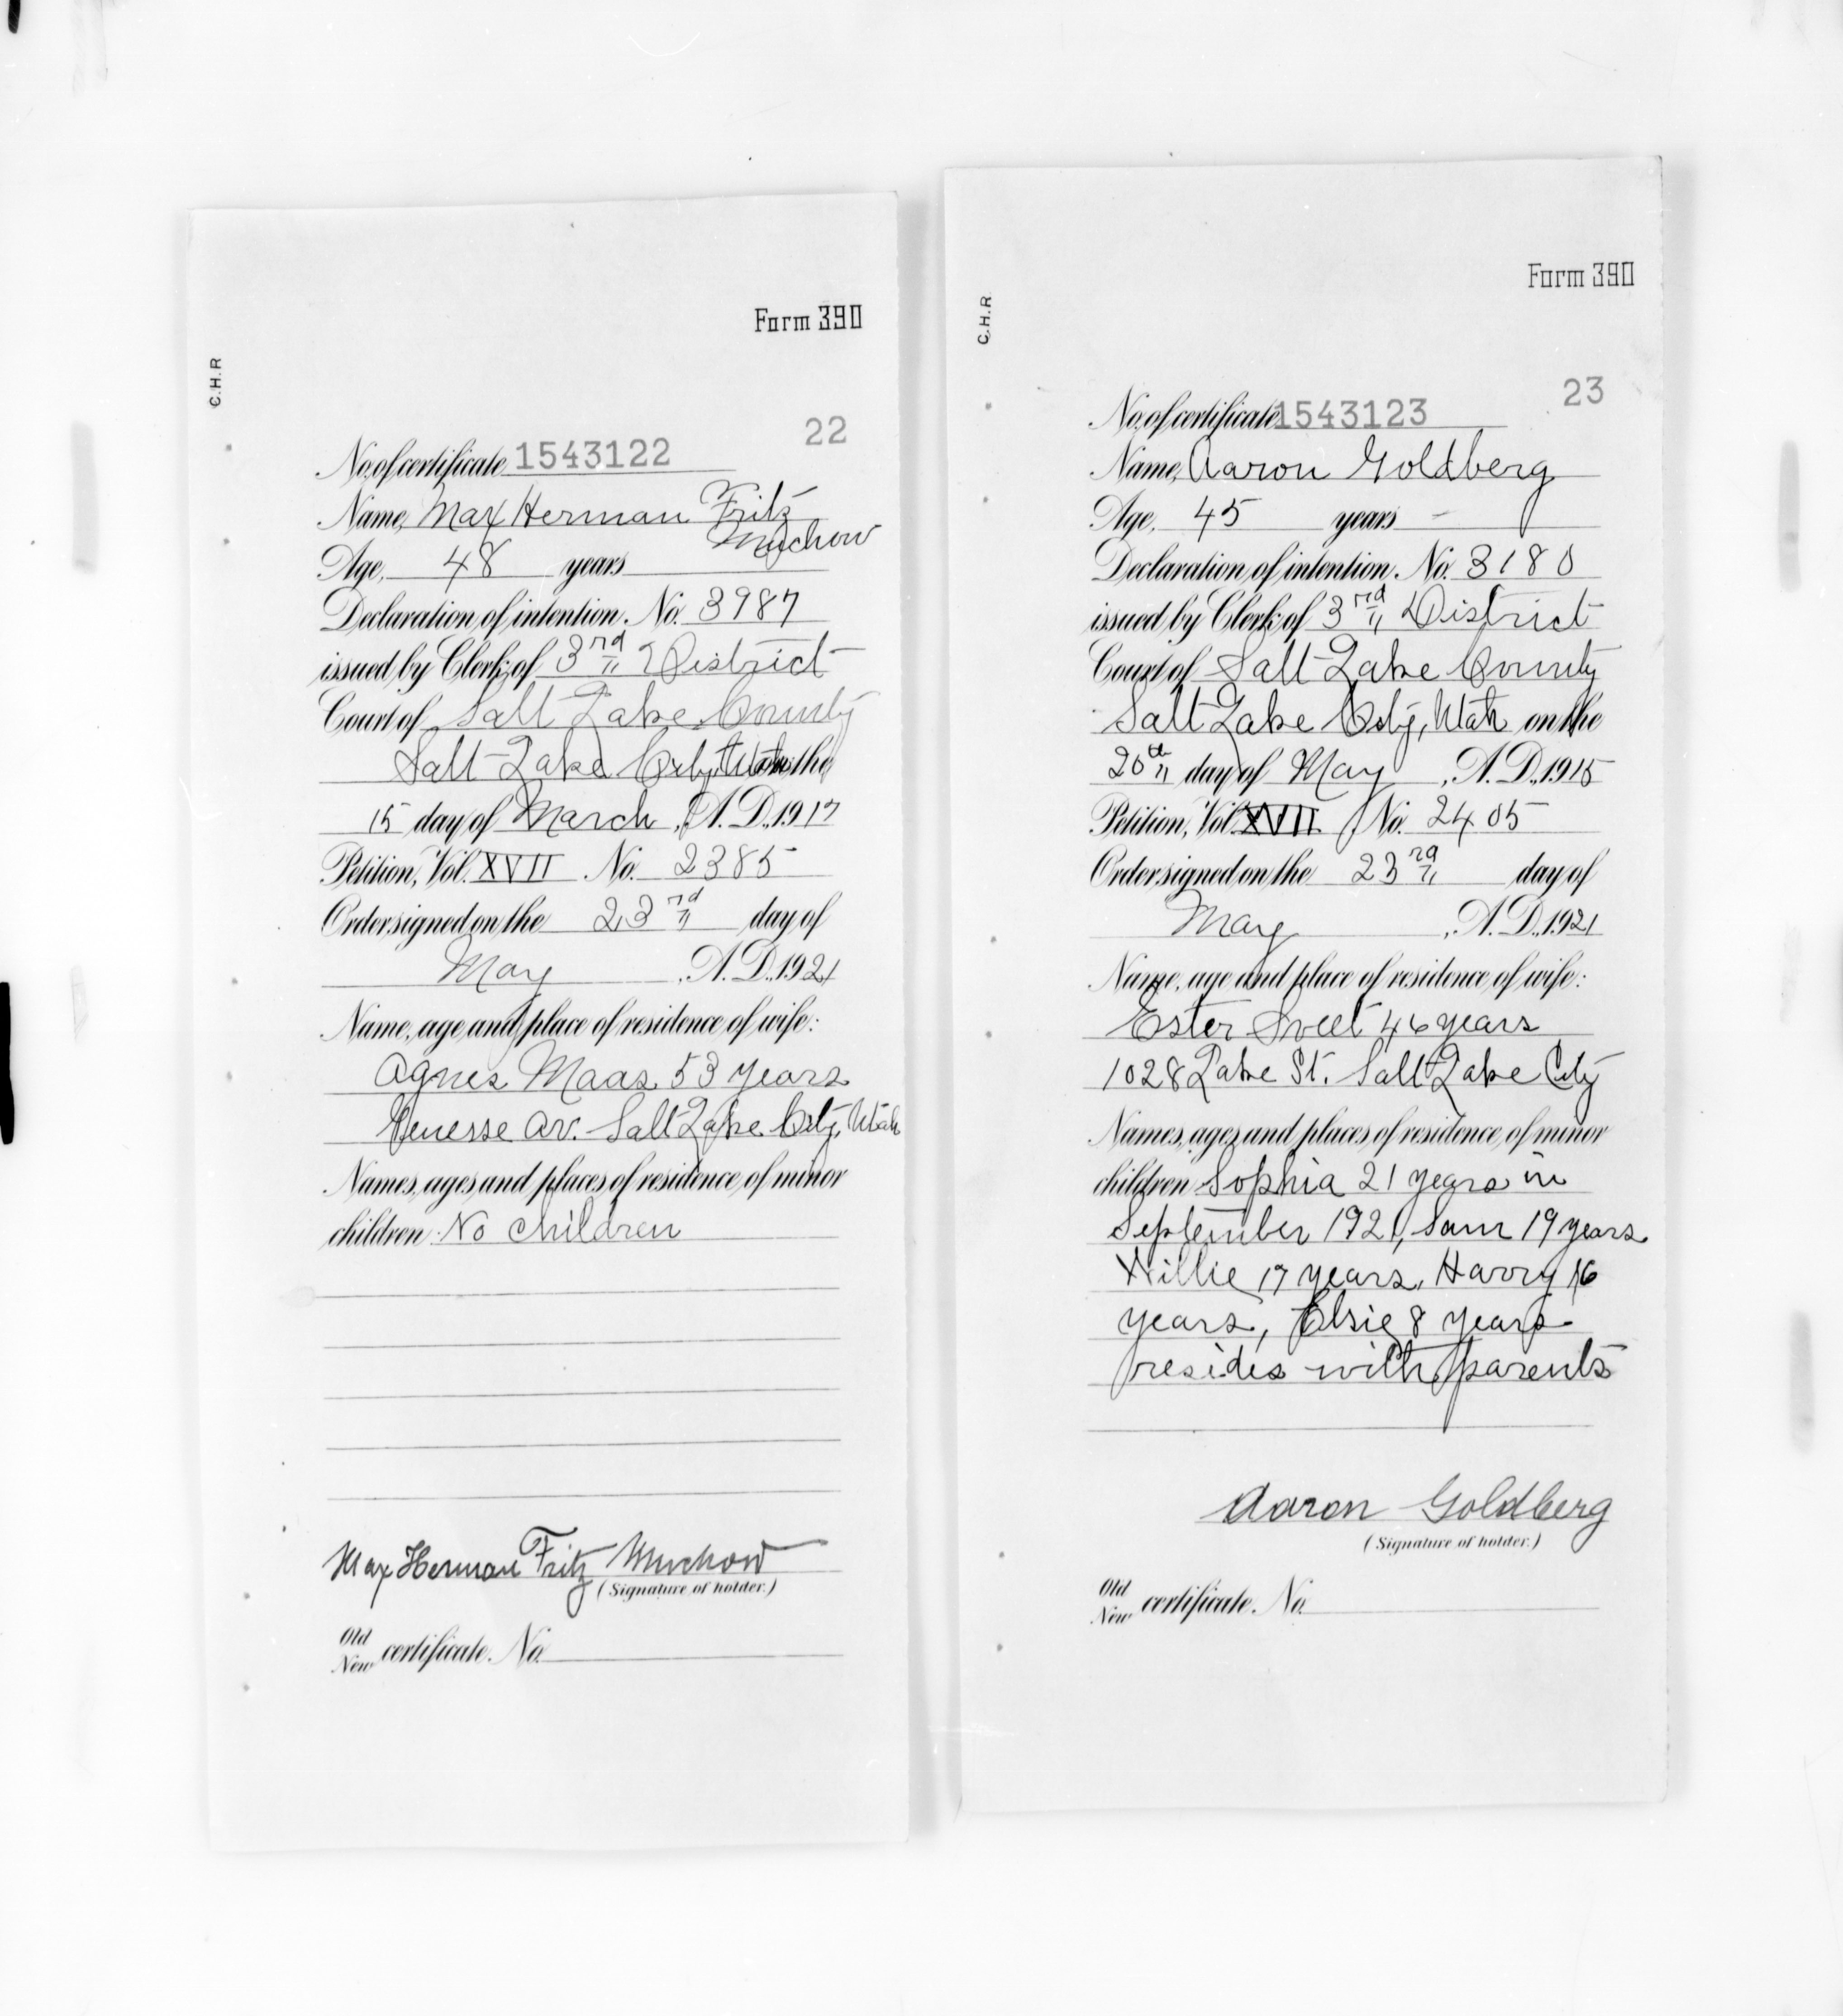 Form 390
C.H.R
22
No. of certificate 1543122
Name, Max Herman Fritz
Muchow
Age, 48 years
Declaration of intention. No. 3987
issued by Clerk of 3rd District
Court of Salt Lake County
Salt Lake City, Utah on the
15 day of March, A.D. 1917
Petition, Vol. XVII No. 2385
Order signed on the 23rd day of
May, A.D. 1921
Name, age and place of residence of wife:
Agnes Maas 53 years
Genesse Av. Salt Lake City, Utah
Names, ages and places of residence of minor
children No children
Max Herman Fritz Muchow
(Signature of holder.)
Old
New certificate. No.
Form 390
C.H.R.
23
No. of certificate 1543123
Name, Aaron Goldberg
Age, 45 years
Declaration of intention. No. 3180
issued by Clerk of 3rd District
Court of Salt Lake County
Salt Lake City, Utah on the
20th day of May, A.D. 1915
Petition, Vol. XVII No. 2405
Order signed on the 23rd day of
May, A.D. 1921
Name, age and place of residence of wife:
Ester Sweet 46 years
1028 Lake St. Salt Lake City
Names, ages and places of residence of minor
children Sophia 21 years in
September 1921, Sam 19 years
Willie 17 years, Harry 16
years, Elsie 8 years
resides with parents
Aaron Goldberg
(Signature of holder.)
Old
New certificate. No.